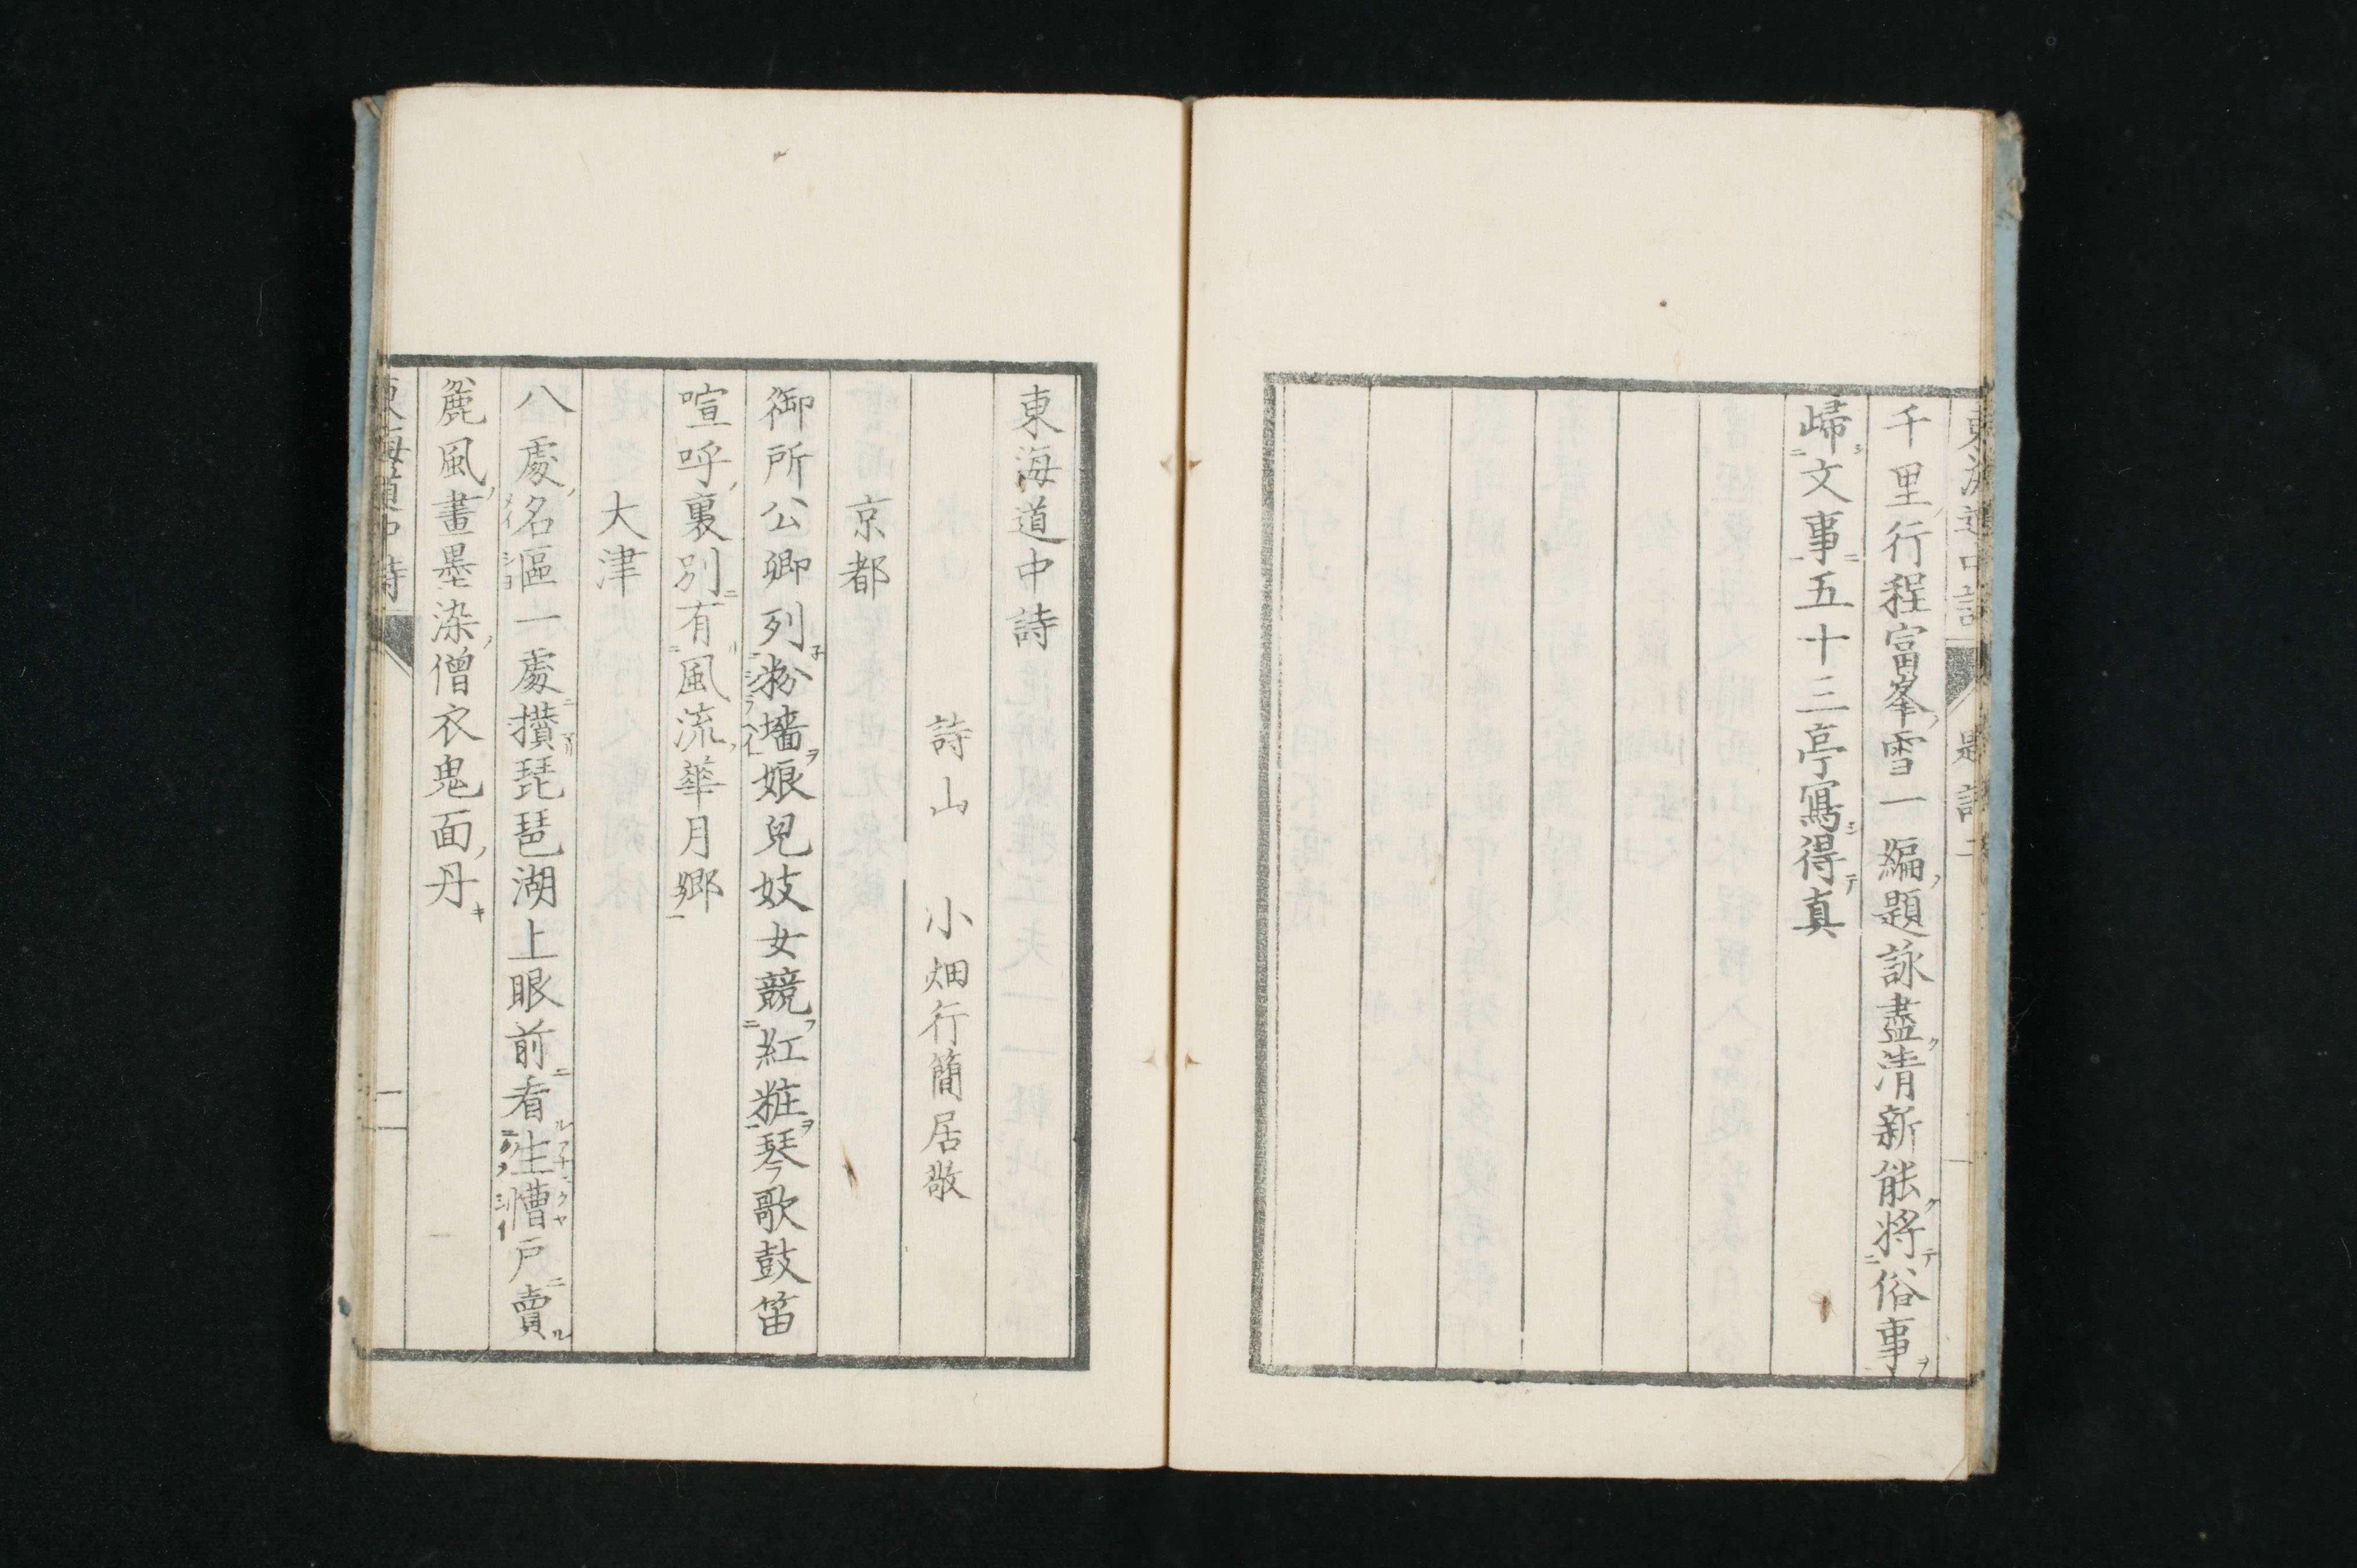 千里行程富峯雪一編題詠盡清新能將俗事
歸文事五十三亭寫得真
東海道中詩
詩山 小畑行簡居敬
京都
御所公卿列粉墻娘兒妓女競紅粧琴歌鼓笛
喧呼裏別有風流華月鄉
大津
八處名區一處攢琵琶湖上眼前看生憎戶賣
麁風畫墨染僧衣鬼面丹
東海道中詩 一